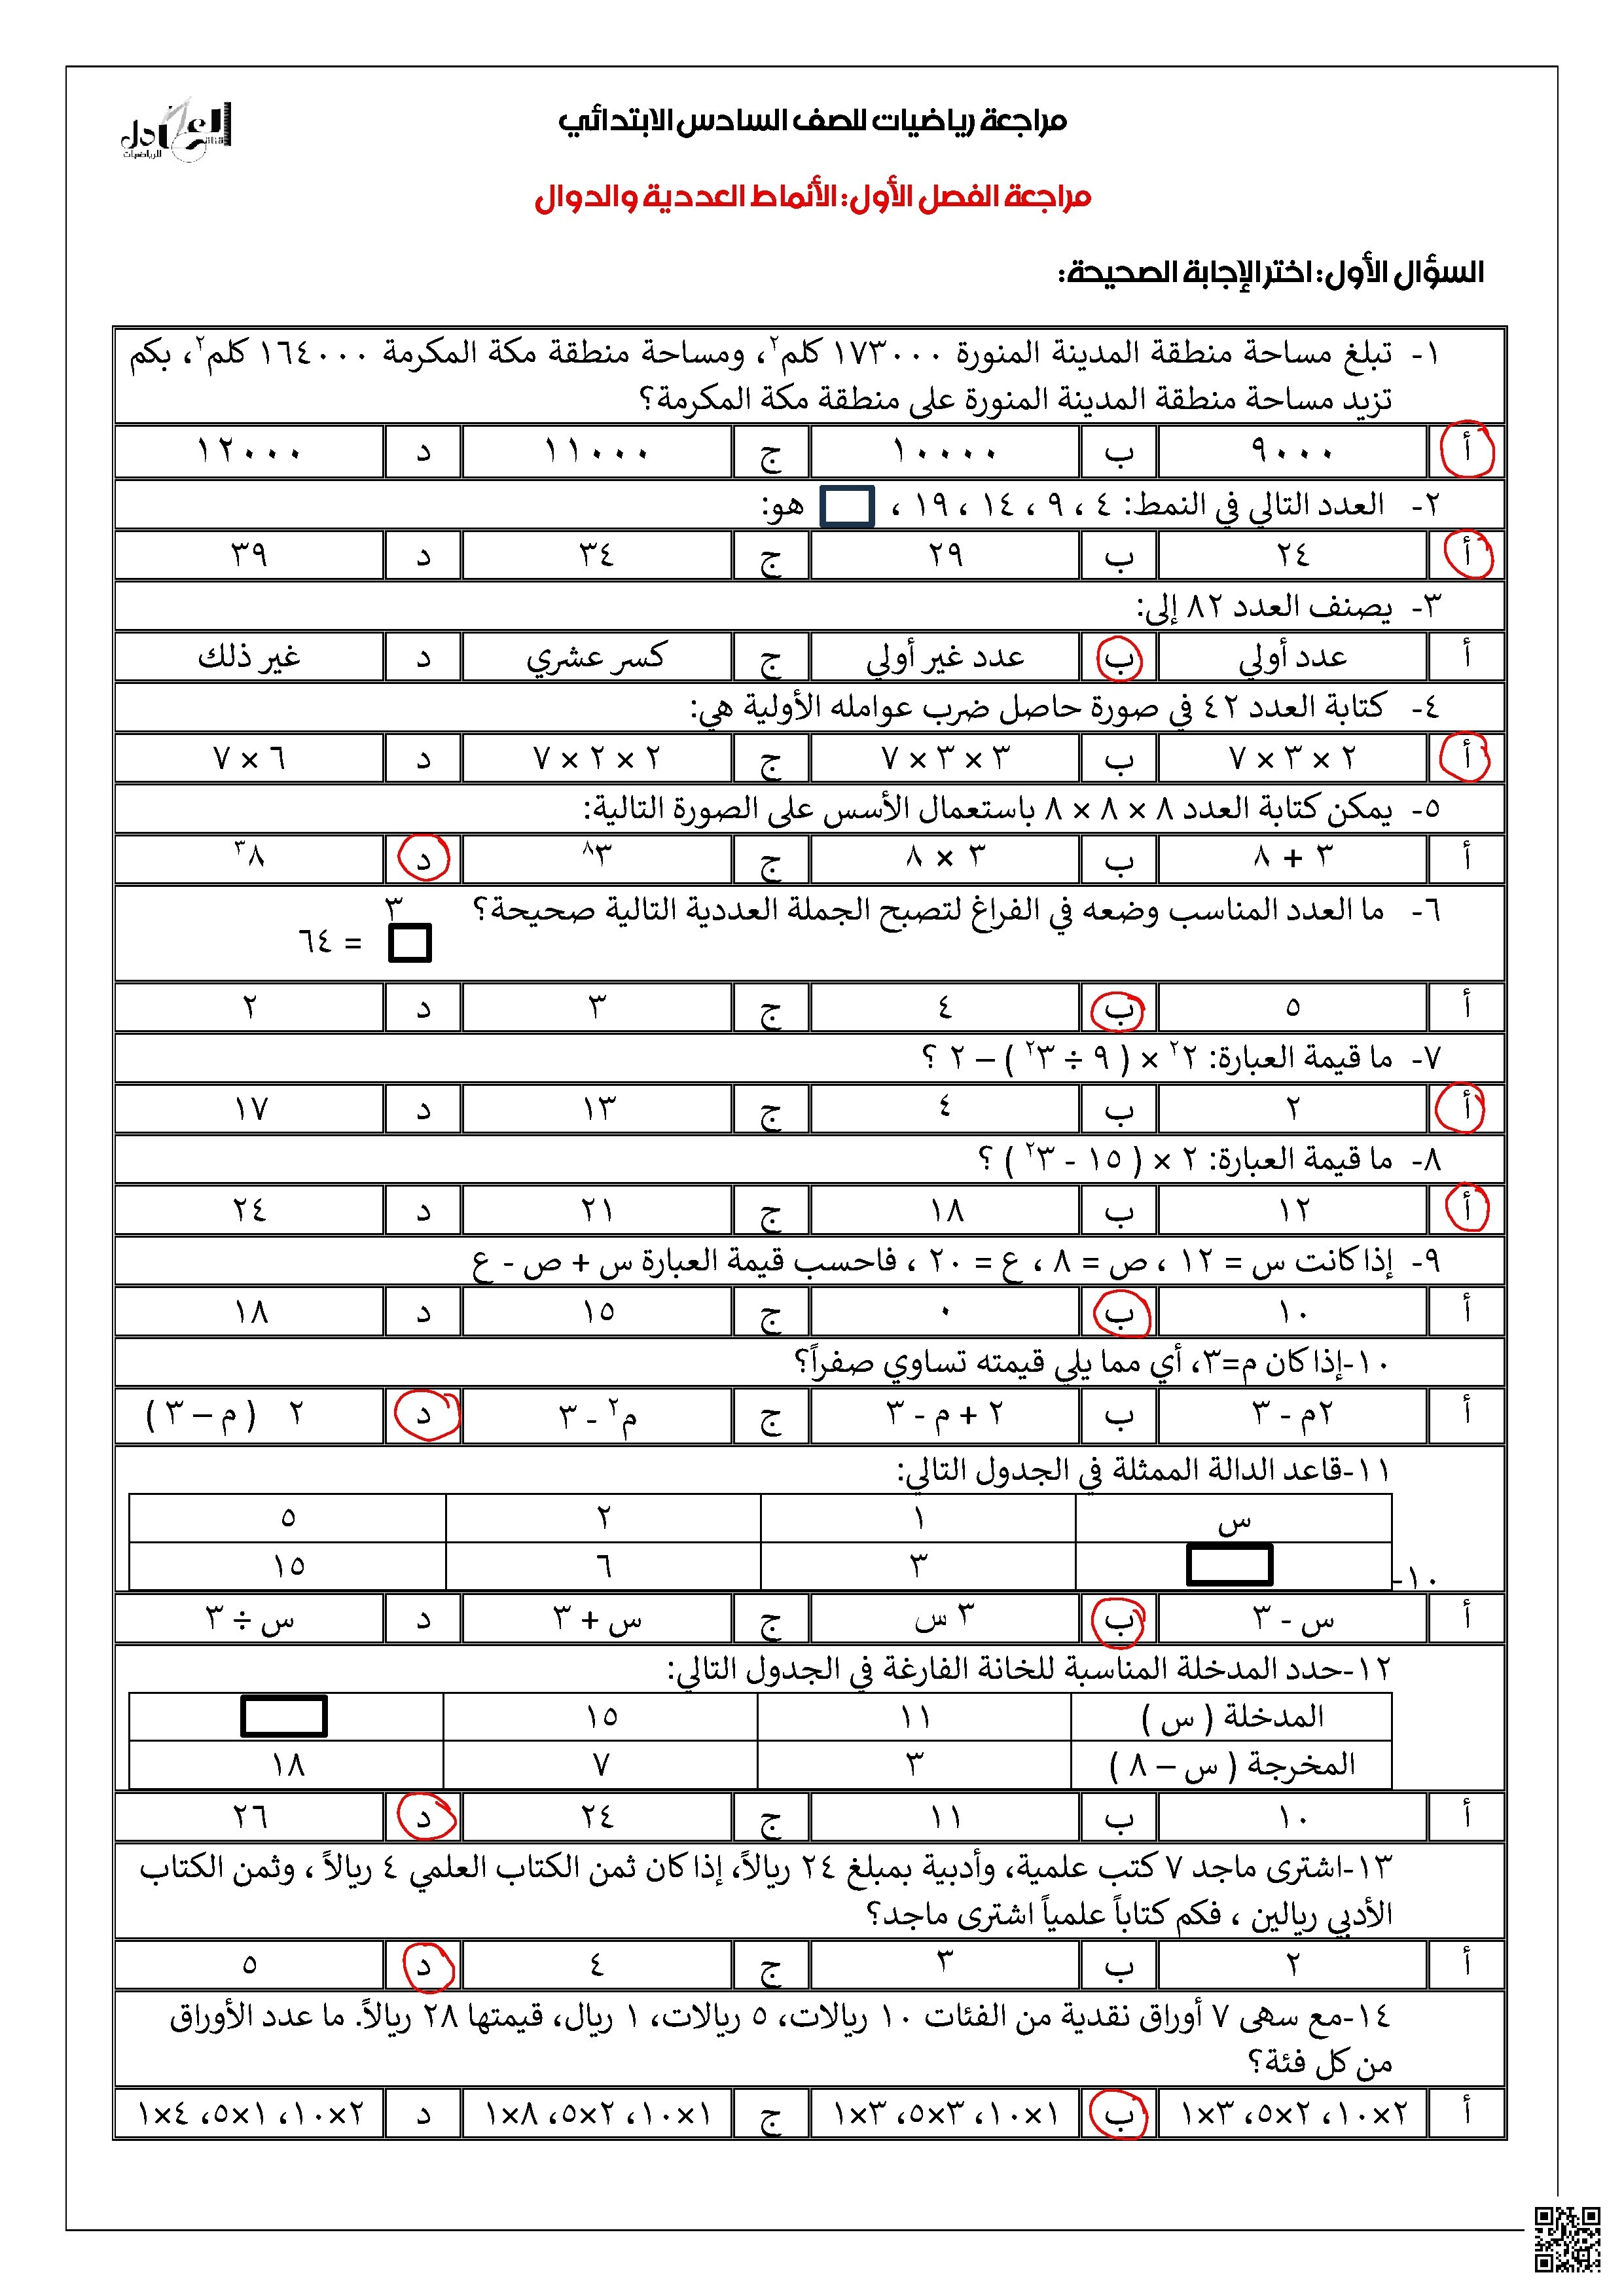 العادل
قناة
للرياضيات
مراجعة رياضيات للصف السادس الابتدائي
مراجعة الفصل الأول: الأنماط العددية والدوال
السؤال الأول: اختر الإجابة الصحيحة:
١- تبلغ مساحة منطقة المدينة المنورة ١٧٣٠٠٠ كلم٢، ومساحة منطقة مكة المكرمة ١٦٤٠٠٠ كلم٢، بكم
تزيد مساحة منطقة المدينة المنورة على منطقة مكة المكرمة؟
أ ٩٠٠٠ ب ١٠٠٠٠ ج ١١٠٠٠ د ١٢٠٠٠
٢- العدد التالي في النمط: ٤ ، ٩ ، ١٤ ، ١٩ ، هو:
أ ٢٤ ب ٢٩ ج ٣٤ د ٣٩
٣- يصنف العدد ٨٢ إلى:
أ عدد أولي ب عدد غير أولي ج كسر عشري د غير ذلك
٤- كتابة العدد ٤٢ في صورة حاصل ضرب عوامله الأولية هي:
أ ٢ × ٣ × ٧ ب ٣ × ٣ × ٧ ج ٢ × ٢ × ٧ د ٦ × ٧
٥- يمكن كتابة العدد ٨ × ٨ × ٨ باستعمال الأسس على الصورة التالية:
أ ٣ + ٨ ب ٣ × ٨ ج ٣⁸ د ٨³
٦- ما العدد المناسب وضعه في الفراغ لتصبح الجملة العددية التالية صحيحة؟ ٣
= ٦٤
أ ٥ ب ٤ ج ٣ د ٢
٧- ما قيمة العبارة: ٢² × ( ٩ ÷ ٣² ) – ٢ ؟
أ ٢ ب ٤ ج ١٣ د ١٧
٨- ما قيمة العبارة: ٢ × ( ١٥ - ٣² ) ؟
أ ١٢ ب ١٨ ج ٢١ د ٢٤
٩- إذا كانت س = ١٢ ، ص = ٨ ، ع = ٢٠ ، فاحسب قيمة العبارة س + ص - ع
أ ١٠ ب ٠ ج ١٥ د ١٨
١٠-إذا كان م=٣، أي مما يلي قيمته تساوي صفراً؟
أ ٢م - ٣ ب ٢ + م - ٣ ج م² - ٣ د ٢ ( م – ٣ )
١١-قاعد الدالة الممثلة في الجدول التالي:
س ١ ٢ ٥
١٠- ٣ ٦ ١٥
أ س - ٣ ب ٣ س ج س + ٣ د س ÷ ٣
١٢-حدد المدخلة المناسبة للخانة الفارغة في الجدول التالي:
المدخلة ( س ) ١١ ١٥
المخرجة ( س – ٨ ) ٣ ٧ ١٨
أ ١٠ ب ١١ ج ٢٤ د ٢٦
١٣-اشترى ماجد ٧ كتب علمية، وأدبية بمبلغ ٢٤ ريالاً، إذا كان ثمن الكتاب العلمي ٤ ريالاً ، وثمن الكتاب
الأدبي ريالين ، فكم كتاباً علمياً اشترى ماجد؟
أ ٢ ب ٣ ج ٤ د ٥
١٤-مع سهى ٧ أوراق نقدية من الفئات ١٠ ريالات، ٥ ريالات، ١ ريال، قيمتها ٢٨ ريالاً. ما عدد الأوراق
من كل فئة؟
أ ٢×١٠، ٢×٥، ٣×١ ب ١×١٠، ٣×٥، ٣×١ ج ١×١٠، ٢×٥، ٨×١ د ٢×١٠، ١×٥، ٤×١